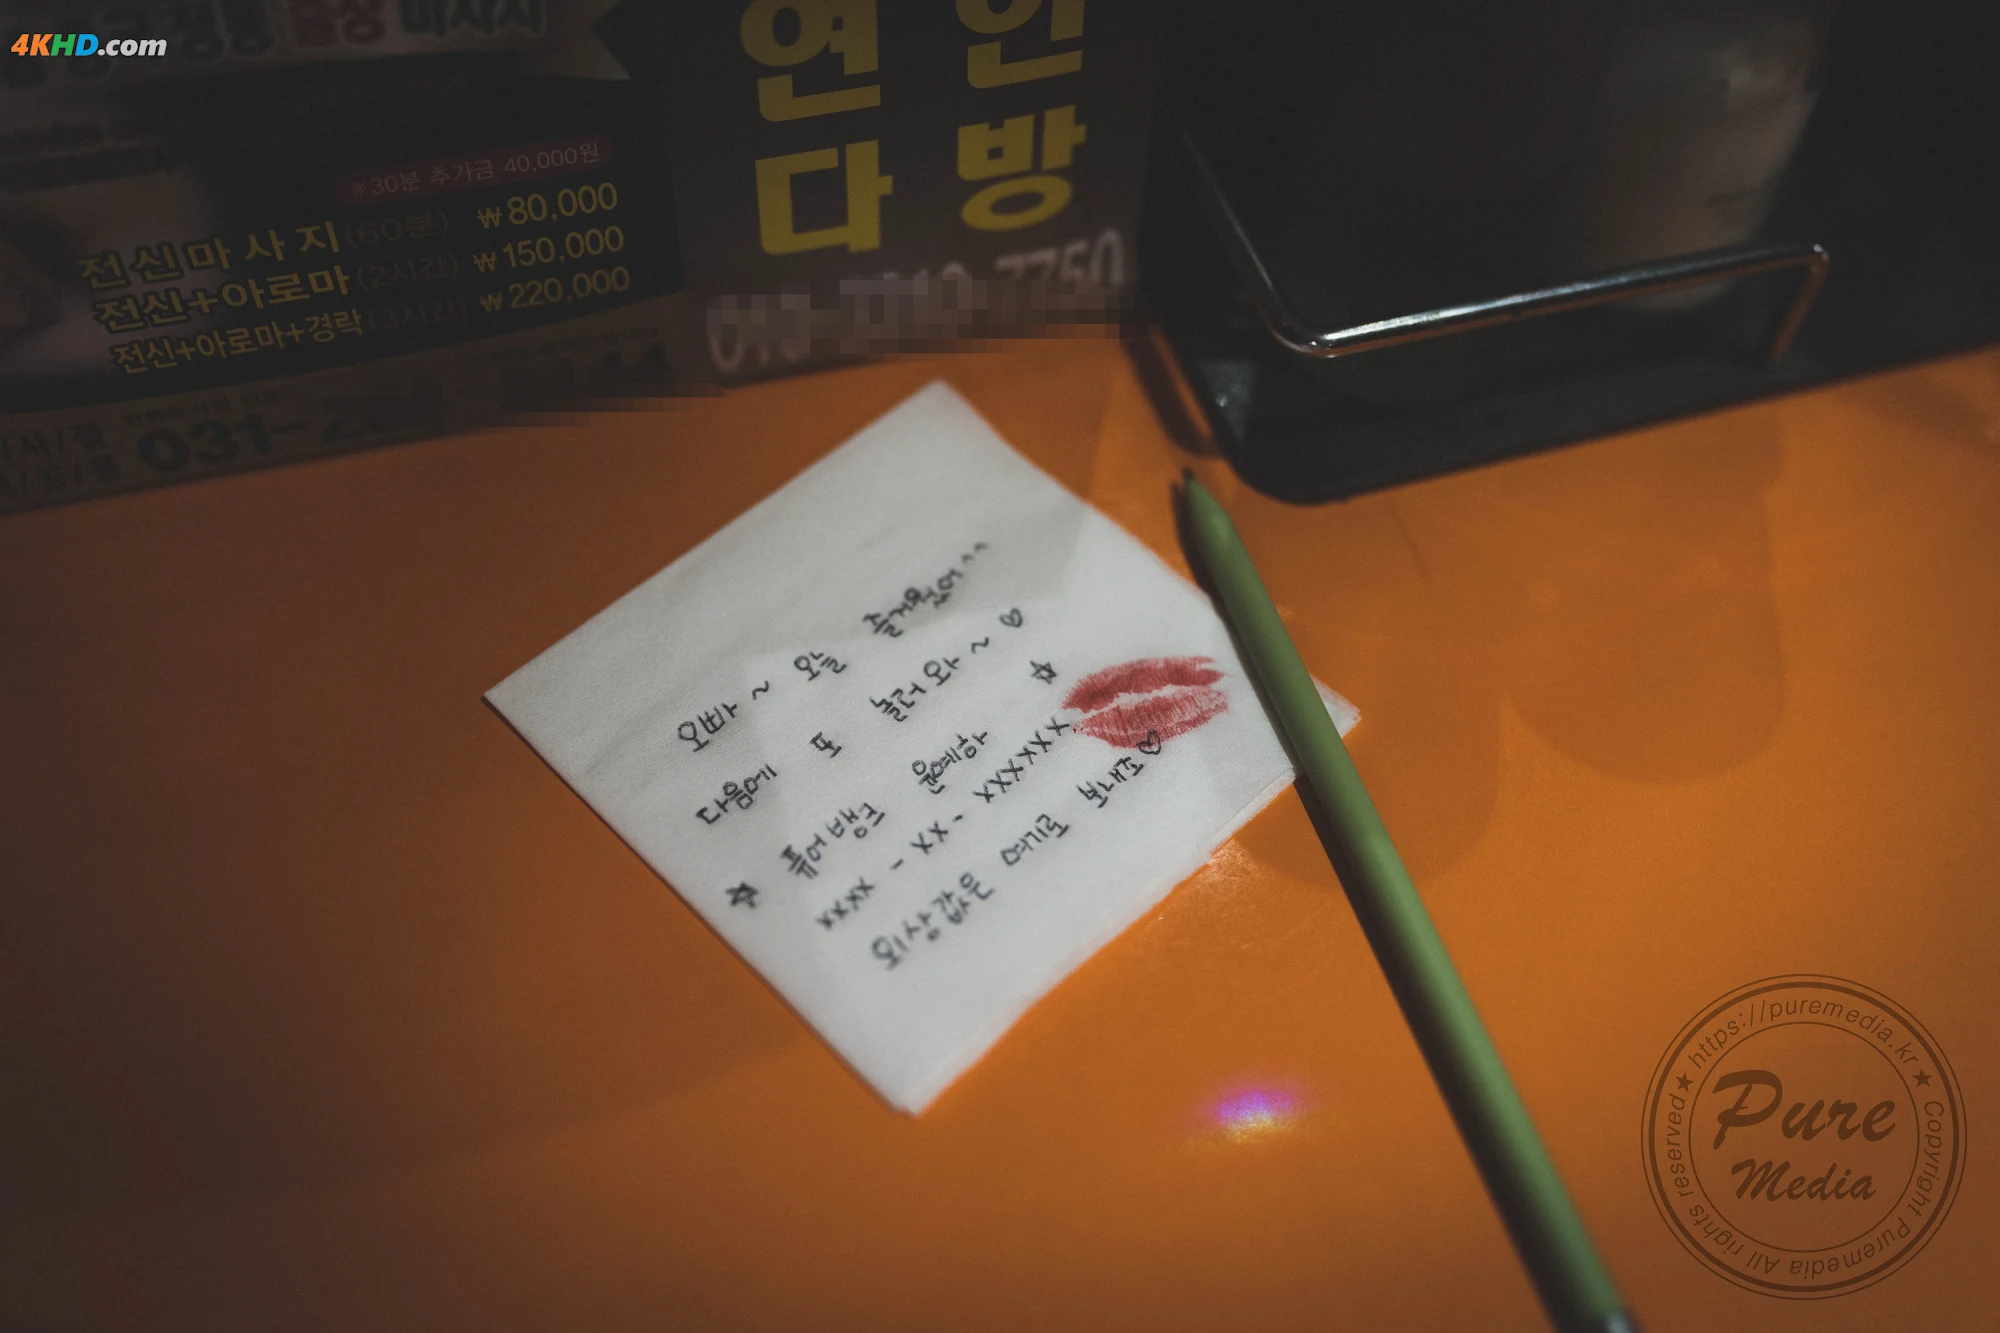 4KHD.com
정통 출장 마사지
※30분 추가금 40,000원
전신마사지(60분) ₩80,000
전신+아로마(2시간) ₩150,000
전신+아로마+경락(3시간) ₩220,000
031-
연인
다방
오빠~ 오늘 즐거웠어^^
다음에 또 놀러와~♡
☆ 퓨어뱅크 윤예하 ☆
xxxx-xx-xxxxxx
외상값은 여기로 보내죠♡
Pure
Media
https://puremedia.kr ★ Copyright Puremedia All rights reserved ★